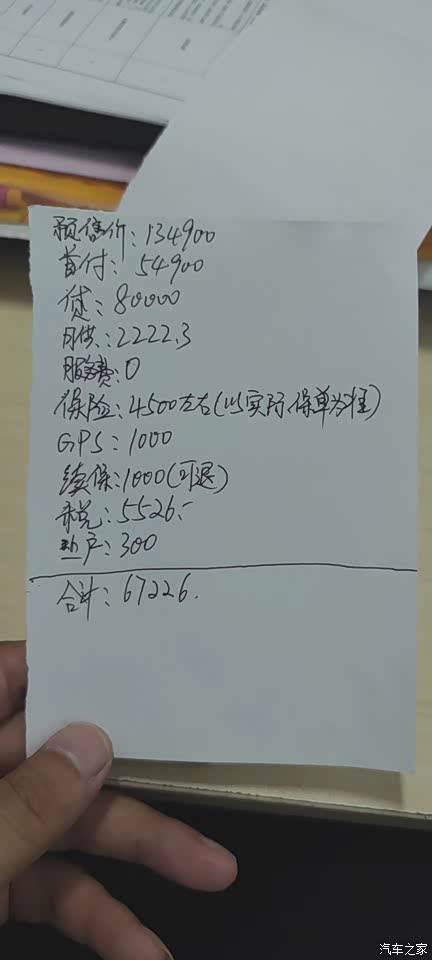 预售价：134900
首付：54900
贷：80000
月供：2222.3
服务费：0
保险：4500左右(以实际保单为准)
GPS：1000
续保：1000(可退)
税：5526.-
户：300
合计：67226.
汽车之家